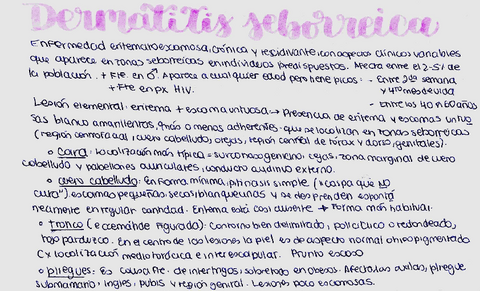 Dermatitis seborreica
Enfermedad eritematoescamosa, crónica y residivante con aspectos clínicos variables
que aparece en zonas seborreicas en individuos predispuestos. Afecta entre el 2-5% de
la población. + Fte. en ♂. Aparece a cualquier edad pero tiene picos: - Entre 2da semana
+ Fte en px HIV. y 4to mes de vida
Lesión elemental: eritema + escama untuosa → Presencia de eritema y escamas untuo - Entre los 40 n 60 años
sas blanco amarillentas, más o menos adherentes que se localizan en zonas seborreicas
(región centrofacial, cuero cabelludo, orejas, región central de tórax y dorso, genitales).
○ Cara: localización más típica = surco nasogeniano, cejas, zona marginal de cuero
cabelludo y pabellones auriculares, conducto auditivo externo.
○ Cuero cabelludo: En forma mínima, pitiriasis simple (× caspa que NO
cura") escamas pequeñas, secas, blanquecinas y se desprenden espontá
neamente en regular cantidad. Eritema está casi ausente → Forma más habitual.
○ tronco (eccemátide figurada): Contorno bien delimitado, policíclico o redondeado,
rojo parduzco. En el centro de las lesiones la piel es de aspecto normal o hipopigmentado
Cx localización mediotorácica e interescapular. Prurito escaso
○ pliegues: Es causa Fte. de intertrigos, sobre todo en obesos. Afecta los axilas, pliegue
submamario, ingles, pubis y región genital. Lesiones poco escamosas.